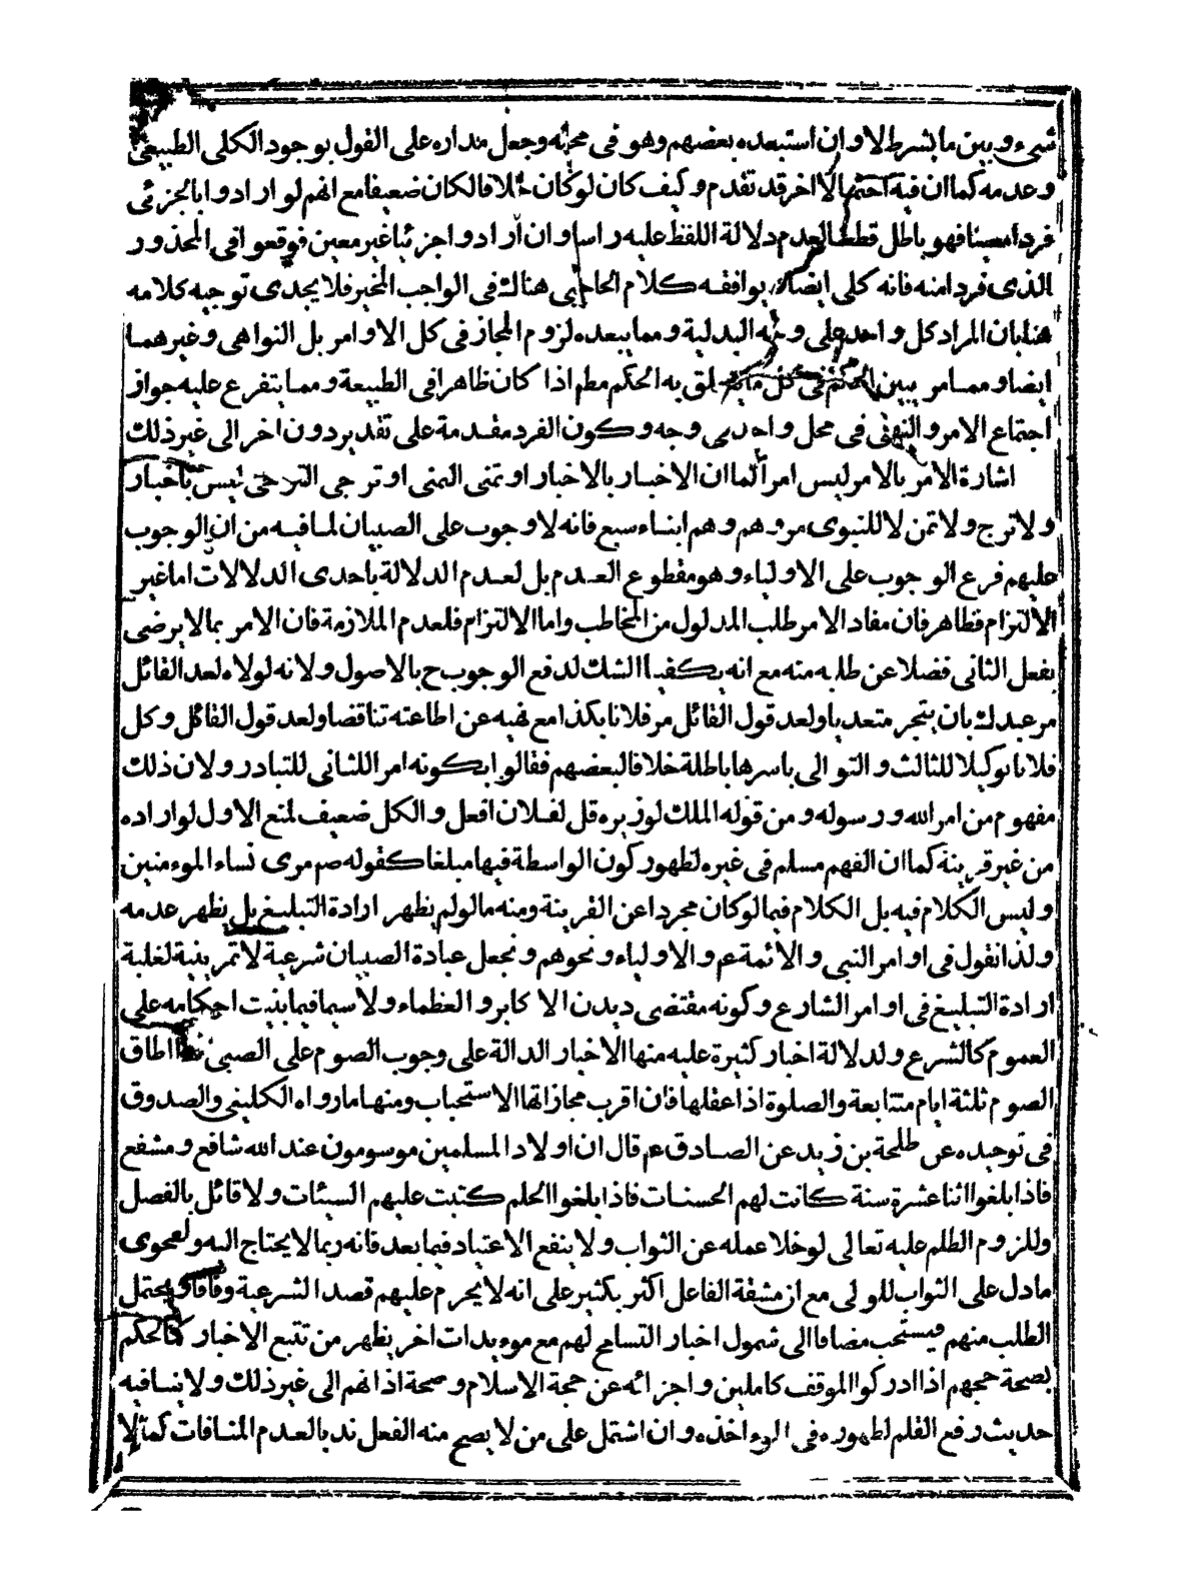 شىء وبين ما بشرط لا وان استبعده بعضهم وهو فى محله وجعل مداره على القول بوجود الكلى الطبيعى
وعدمه كما ان فيه احتمالا اخر قد تقدم وكيف كان لو كان خلافا لكان ضعيفا مع انهم لو ارادوا بالجزئى
فردا معينا فهو باطل قطعا لعدم دلالة اللفظ عليه راسا وان ارادوا جزئيا غير معين فوقعوا فى المحذور
الذى فردا منه فانه كلى ايضا يوافقه كلام الحاجبى هناك فى الواجب المخير فلا يجدى توجيه كلامه
هنا بان المراد كل واحد على وجه البدلية ومما يبعده لزوم المجاز فى كل الاوامر بل النواهى وغيرهما
ايضا ومما مر يبين الحكم فى كل ما يتعلق به الحكم مطم اذا كان ظاهرا فى الطبيعة ومما يتفرع عليه جواز
اجتماع الامر والنهى فى محل واحد وجه وكون الفرد مقدمة على تقدير دون اخر الى غير ذلك
اشارة الامر بالامر ليس امرا كما ان الاخبار بالاخبار او تمنى التمنى او ترجى الترجى ليس باخبار
ولا ترج ولا تمن لا للنبوى مروهم وهم ابناء سبع فانه لا وجوب على الصبيان لما فيه من ان الوجوب
عليهم فرع الوجوب على الاولياء وهو مقطوع العدم بل لعدم الدلالة باحدى الدلالات اما غير
الالتزام فظاهر فان مفاد الامر طلب المدلول من المخاطب واما الالتزام فلعدم الملازمة فان الامر بما لا يرضى
بفعل الثانى فضلا عن طلبه منه مع انه يكفينا الشك لدفع الوجوب ح بالاصول ولانه لولاه لعد القائل
مر عبدك بان يتجر متعديا ولعد قول القائل مر فلانا بكذا مع نهيه عن اطاعته تناقضا ولعد قول القائل وكل
فلانا توكيلا للثالث والتوالى باسرها باطلة خلافا لبعضهم فقالوا بكونه امر اللثانى للتبادر ولان ذلك
مفهوم من امر الله ورسوله ومن قوله الملك لوزيره قل لفلان افعل والكل ضعيف لمنع الاول لو اراده
من غير قرينة كما ان الفهم مسلم فى غيره لظهور كون الواسطة فيها مبلغا كقوله صم مرى نساء المومنين
وليس الكلام فيه بل الكلام فيما لو كان مجردا عن القرينة ومنه ما لو لم يظهر ارادة التبليغ بل يظهر عدمه
ولذا نقول فى اوامر النبى والائمة عم والاولياء ونحوهم ونجعل عبادة الصبيان شرعية لا تمرينية لغلبة
ارادة التبليغ فى اوامر الشارع وكونه مقتضى ديدن الاكابر والعظماء ولا سيما فيما بنيت احكامه على
العموم كالشرع ولدلالة اخبار كثيرة عليه منها الاخبار الدالة على وجوب الصوم على الصبى اطاق
الصوم ثلثة ايام متتابعة والصلوة اذا عقلها فان اقرب مجازاتها الاستحباب ومنها ما رواه الكلينى والصدوق
فى توحيده عن طلحة بن زيد عن الصادق عم قال ان اولاد المسلمين موسومون عند الله شافع ومشفع
فاذا بلغوا اثنا عشرة سنة كانت لهم الحسنات فاذا بلغوا الحلم كتبت عليهم السيئات ولا قائل بالفصل
وللزوم الظلم عليه تعالى لو خلا عمله عن الثواب ولا ينفع الاعتياد فيما بعد فانه ربما لا يحتاج اليه ولفحوى
ما دل على الثواب للولى مع ان مشقة الفاعل اكثر بكثير على انه لا يحرم عليهم قصد الشرعية وفاقا ويحتمل
الطلب منهم فيستحب مضافا الى شمول اخبار التسامح لهم مع مويدات اخر يظهر من تتبع الاخبار كالحكم
بصحة حجهم اذا ادركوا الموقف كاملين واجزائه عن حجة الاسلام وصحة اذانهم الى غير ذلك ولا ينافيه
حديث رفع القلم لظهوره فى المواخذه وان اشتمل على من لا يصح منه الفعل ندبا لعدم المنافات كما لا